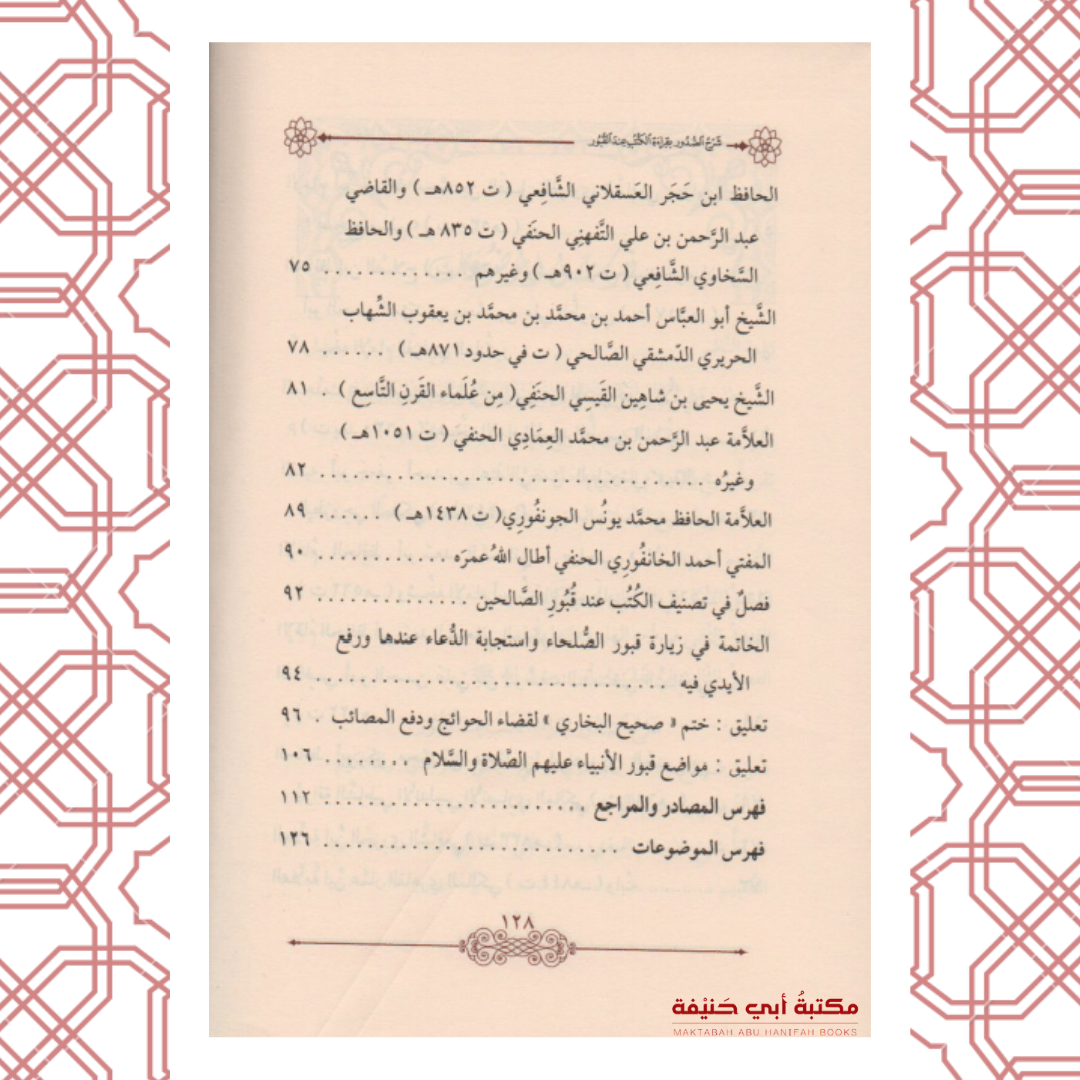 شَرْحُ الصُّدُورِ بِقِرَاءَةِ الكُتُبِ عِنْدَ القُبُورِ
الحافظ ابن حَجَر العَسقلاني الشَّافِعي ( ت ٨٥٢هـ ) والقاضي
عبد الرَّحمن بن علي التَّفهنِي الحنَفي ( ت ٨٣٥ هـ ) والحافظ
السَّخاوي الشَّافِعي ( ت ٩٠٢هـ ) وغيرهم . . . . . . . . . . . . . ٧٥
الشَّيخ أبو العبَّاس أحمد بن محمَّد بن محمَّد بن يعقوب الشِّهاب
الحريري الدّمشقي الصَّالحي ( ت في حدود ٨٧١هـ ) . . . . . . ٧٨
الشَّيخ يحيى بن شاهِين القَيسِي الحنَفِي( مِن عُلَماء القَرنِ التَّاسِع ) . ٨١
العلاَّمة عبد الرَّحمن بن محمَّد العِمَادِي الحنفي ( ت ١٠٥١هـ )
وغيرُه . . . . . . . . . . . . . . . . . . . . . . . . . . . . . . . . . . . ٨٢
العلاَّمة الحافظ محمَّد يونُس الجونفُورِي( ت ١٤٣٨هـ ) . . . . . . ٨٩
المفتي أحمد الخانفُورِي الحنفي أطال اللهُ عمرَه . . . . . . . . . . . . ٩٠
فصلٌ في تصنيف الكُتُب عند قُبُورِ الصَّالحين . . . . . . . . . . . . . . ٩٢
الخاتمة في زيارة قبور الصُّلحاء واستجابة الدُّعاء عندها ورفع
الأيدي فيه . . . . . . . . . . . . . . . . . . . . . . . . . . . . . . . . . . ٩٤
تعليق : ختم « صحيح البخاري » لقضاء الحوائج ودفع المصائب . . ٩٦
تعليق : مواضع قبور الأنبياء عليهم الصَّلاة والسَّلام . . . . . . . . ١٠٦
فهرس المصادر والمراجع . . . . . . . . . . . . . . . . . . . . . . . . ١١٢
فهرس الموضوعات . . . . . . . . . . . . . . . . . . . . . . . . . . . ١٢٦
١٢٨
مكتبةُ أبي حَنيْفة
MAKTABAH ABU HANIFAH BOOKS